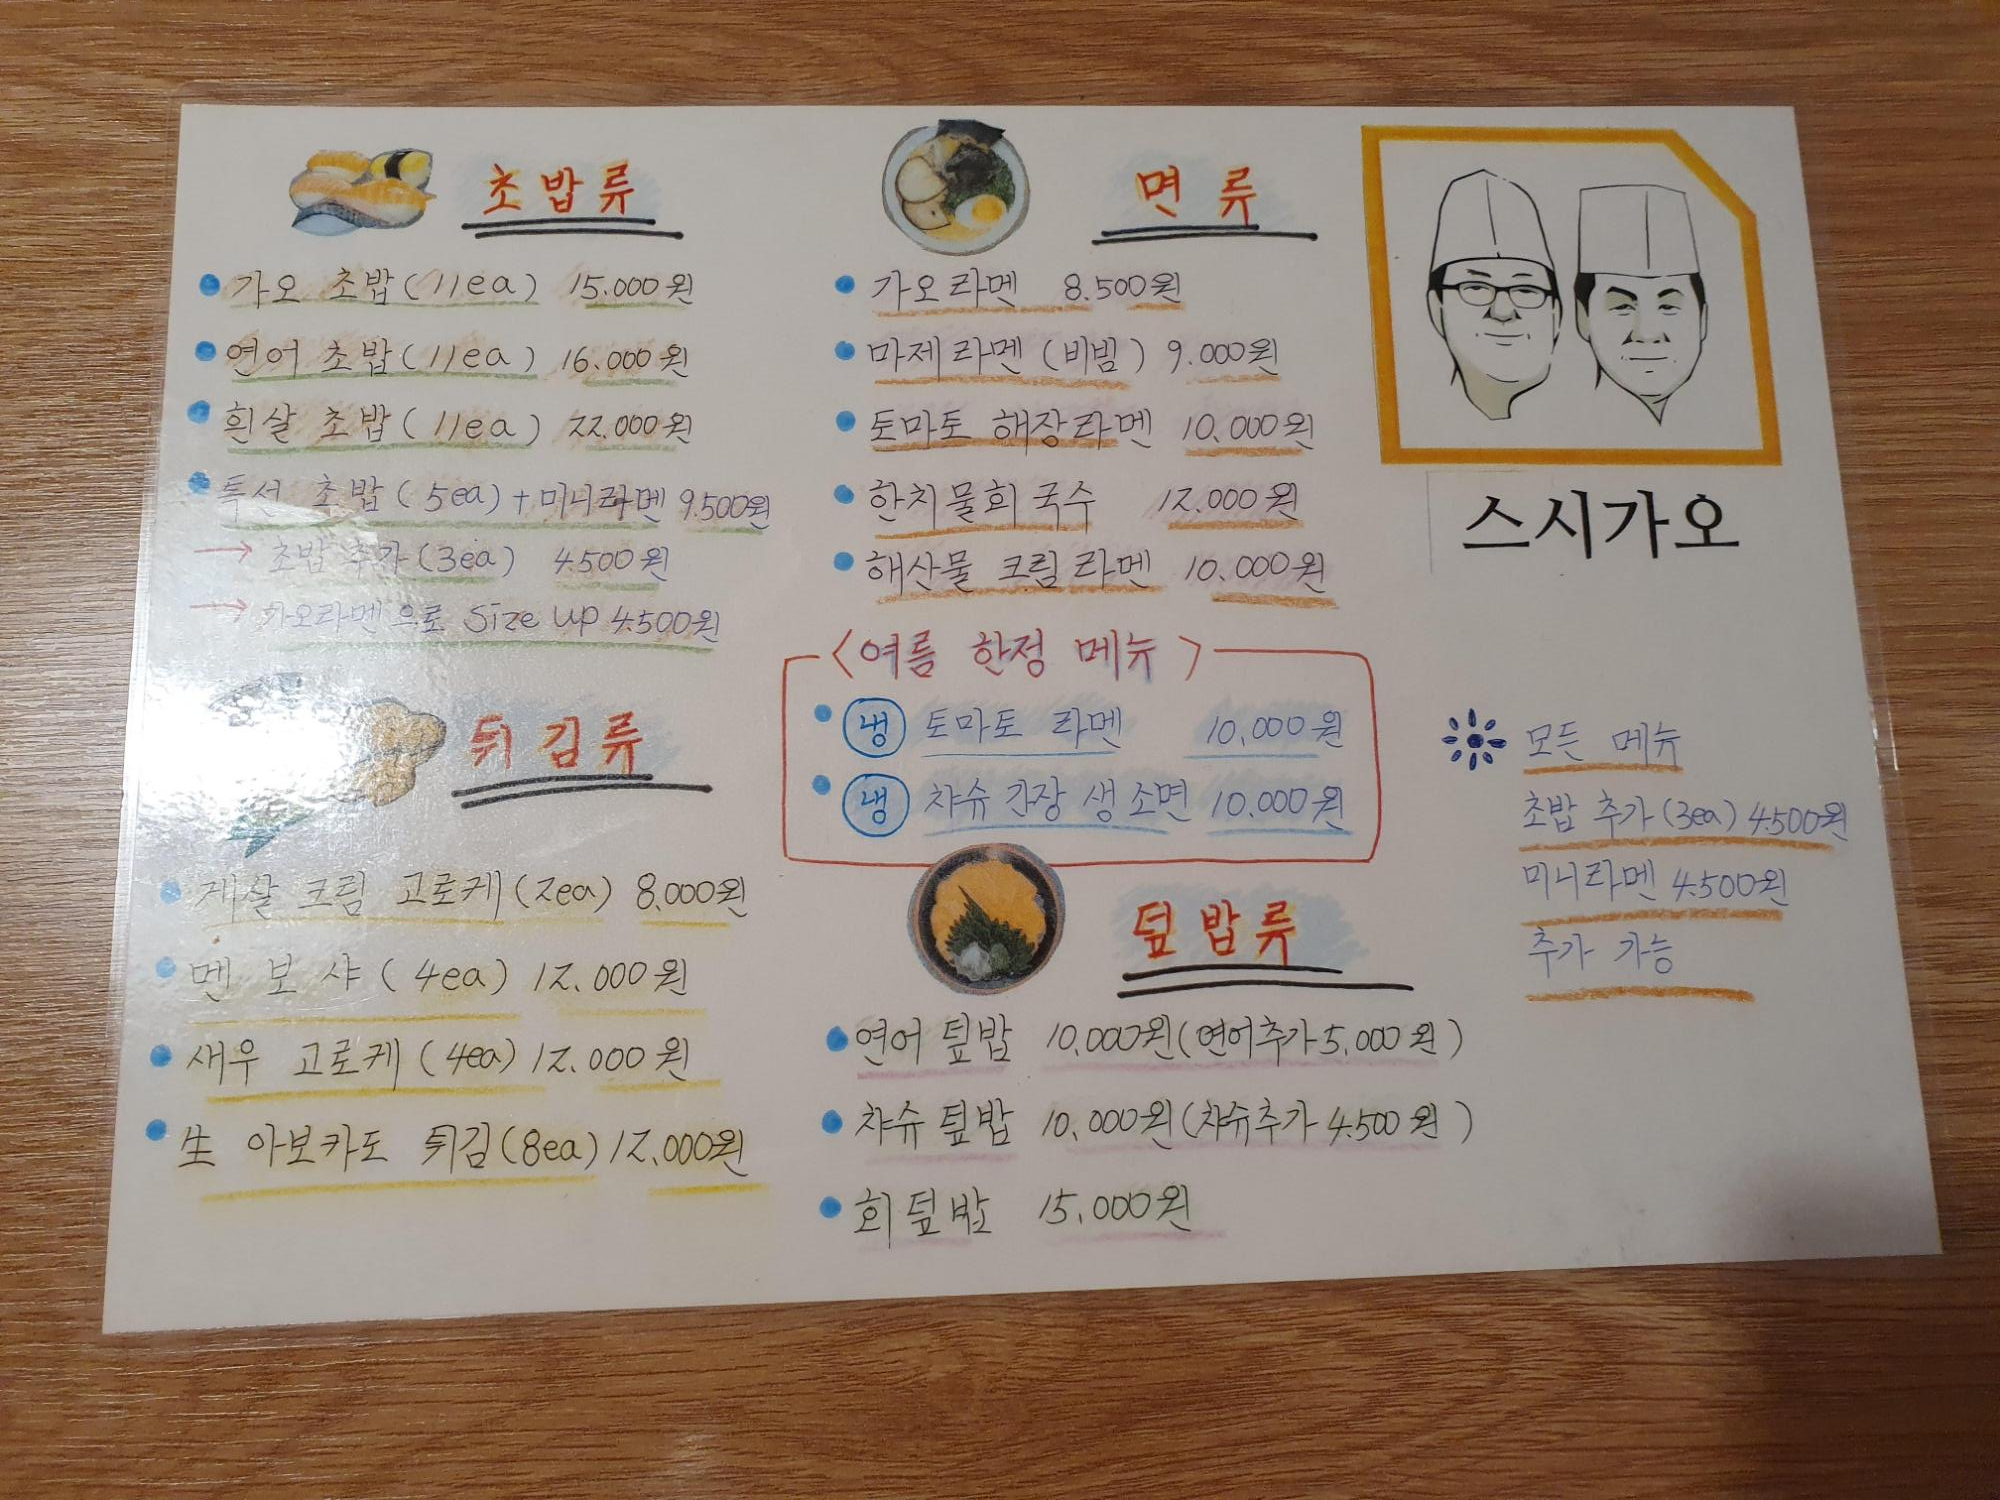 초밥류
• 가오 초밥(11ea) 15.000원
• 연어 초밥(11ea) 16.000원
• 흰살 초밥(11ea) 22.000원
• 특선 초밥(5ea)+미니라멘 9.500원
→ 초밥 추가(3ea) 4.500원
→ 가오라멘으로 Size up 4.500원
튀김류
• 게살 크림 고로케(2ea) 8.000원
• 멘보샤(4ea) 12.000원
• 새우 고로케(4ea) 12.000원
• 生 아보카도 튀김(8ea) 12.000원
면류
• 가오라멘 8.500원
• 마제라멘(비빔) 9.000원
• 토마토 해장라멘 10.000원
• 한치물회국수 12.000원
• 해산물 크림라멘 10.000원
<여름 한정 메뉴>
• 냉 토마토 라멘 10,000원
• 냉 챠슈간장 생소면 10.000원
덮밥류
• 연어 덮밥 10.000원(연어추가 5,000원)
• 챠슈 덮밥 10,000원(챠슈추가 4.500원)
• 회덮밥 15,000원
스시가오
모든 메뉴
초밥 추가(3ea) 4.500원
미니라멘 4.500원
추가 가능